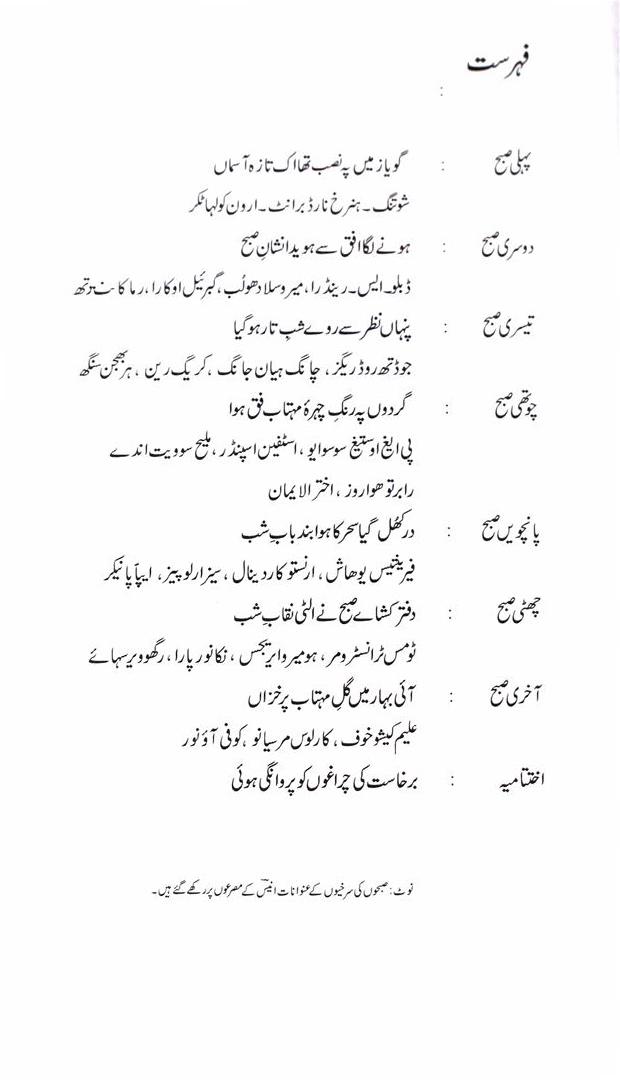 فہرست
:
پہلی صبح : گویا زمیں پہ نصب تھا اک تازہ آسماں
شوتنگ۔ ہنرخ نارڈ برانٹ۔ ارون کولہاٹکر
دوسری صبح : ہونے لگا افق سے ہویدا نشانِ صبح
ڈبلو۔ ایس۔ رینڈرا، میروسلاد ھولُب، گبرئیل اوکارا، رما کانت رتھ
تیسری صبح : پنہاں نظر سے روے شبِ تار ہو گیا
جوڈتھ روڈریگز، چانگ ہیان جانگ، کریگ رین، ہربھجن سنگھ
چوتھی صبح : گردوں پہ رنگِ چہرۂ مہتاب فق ہوا
پی ایغ اوستیغ سوسوایو، اسٹفین اسپنڈر، ملیح سوویت اندے
رابرتو ھواروز، اختر الایمان
پانچویں صبح : در کھُل گیا سحر کا ہوا بند بابِ شب
فیریتیس یوھاش، ارنستو کاردینال، سیزار لوپیز، ایپّا پانیکر
چھٹی صبح : دفتر کشاے صبح نے الٹی نقابِ شب
ٹومس ٹرانسٹرومر، ہومیرو ایریجس، نکانور پارا، رگھوویر سہائے
آخری صبح : آئی بہار میں گلِ مہتاب پر خزاں
علیم کیشوخوف، کارلوس مرسیانو، کوفی آؤنور
اختتامیہ : برخاست کی چراغوں کو پروانگی ہوئی
نوٹ: صبحوں کی سرخیوں کے عنوانات انیسؔ کے مصرعوں پر رکھے گئے ہیں۔